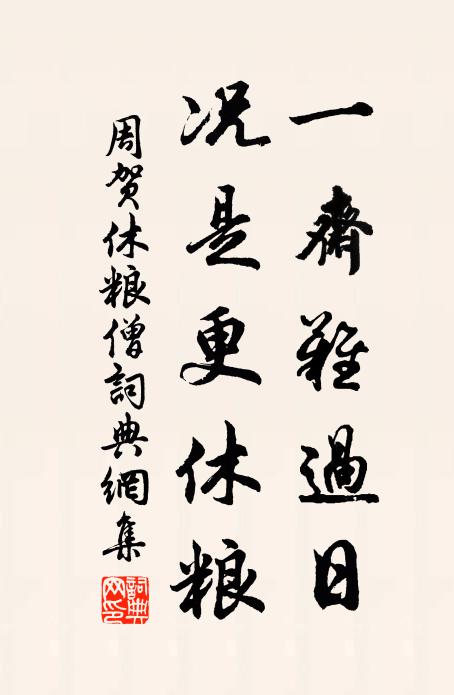 一齋難過日
况是更休粮
周贺休粮僧詞典網集
詞典网印